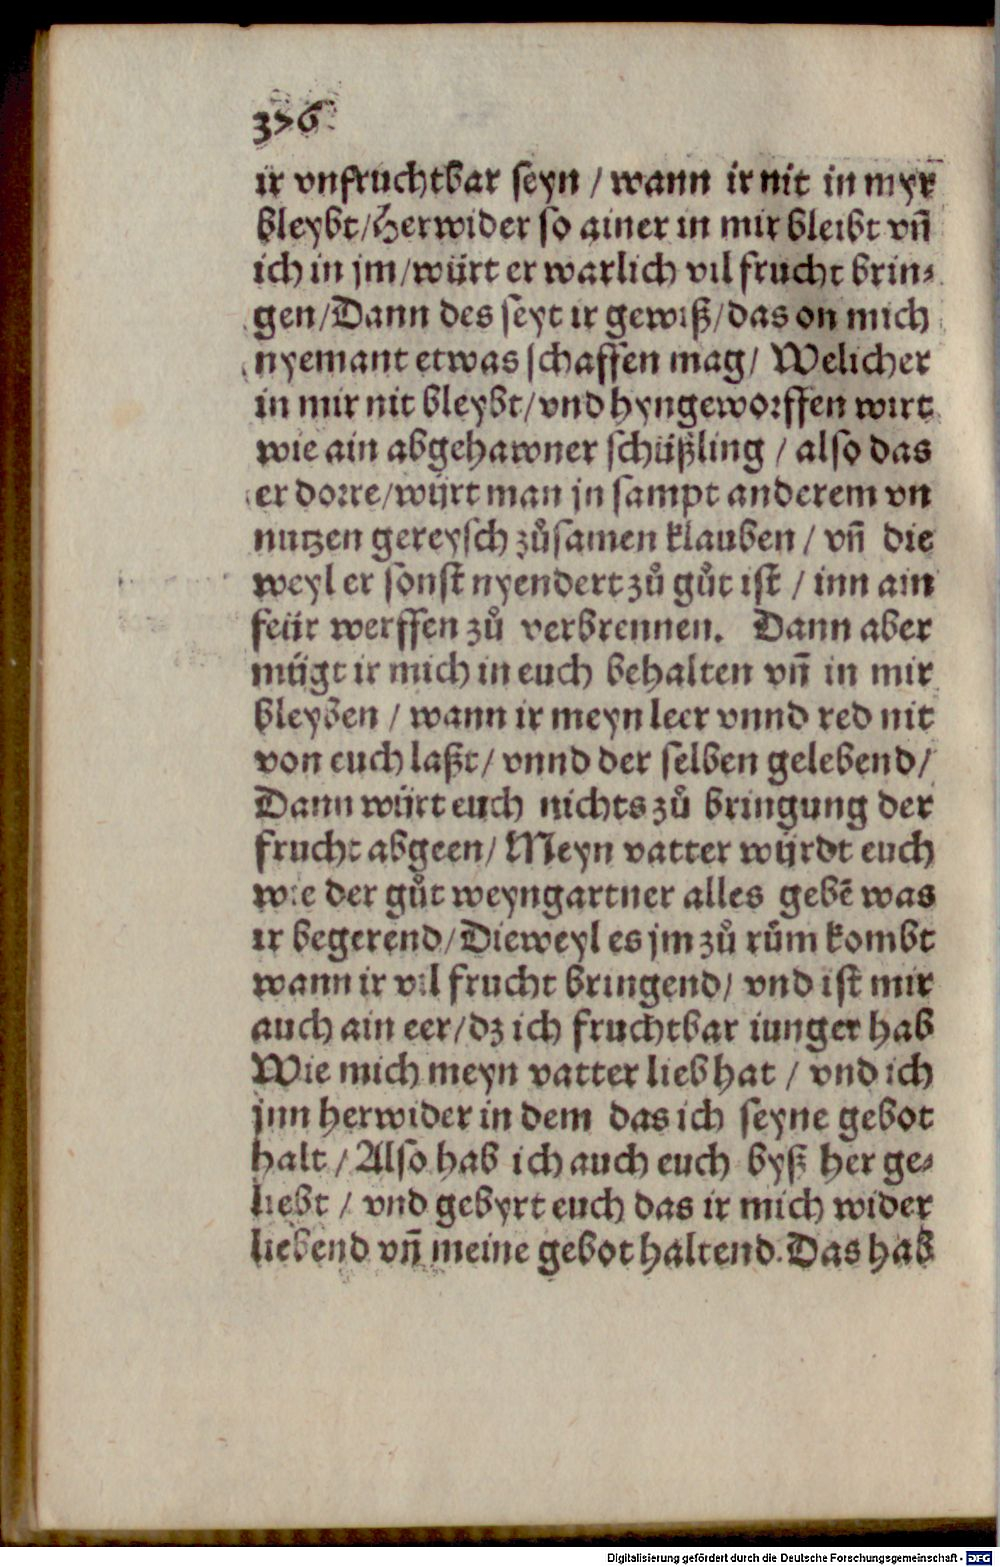 376
ir vnfruchtbar seyn / wann ir nit in myr
bleybt / Herwider so ainer in mir bleibt vn̄
ich in jm / würt er warlich vil frucht brin⸗
gen / Dann des seyt ir gewiß / das on mich
nyemant etwas schaffen mag / Welicher
in mir nit bleybt / vnd hyngeworffen wirt
wie ain abgehawner schüßling / also das
er dorre / würt man jn sampt anderem vn
nutzen gereysch zůsamen klauben / vn̄ die
weyl er sonst nyendert zů gůt ist / inn ain
feür werffen zů verbrennen. Dann aber
mügt ir mich in euch behalten vn̄ in mir
bleyben / wann ir meyn leer vnnd red nit
von euch laßt / vnnd der selben gelebend /
Dann würt euch nichts zů bringung der
frucht abgeen / Meyn vatter würdt euch
wie der gůt weyngartner alles gebē was
ir begerend / Dieweyl es jm zů rům kombt
wann ir vil frucht bringend / vnd ist mir
auch ain eer / dz ich fruchtbar iunger hab
Wie mich meyn vatter lieb hat / vnd ich
jnn herwider in dem das ich seyne gebot
halt / Also hab ich auch euch byß her ge⸗
liebt / vnd gebyrt euch das ir mich wider
liebend vn̄ meine gebot haltend. Das hab
Digitalisierung gefördert durch die Deutsche Forschungsgemeinschaft - DFG